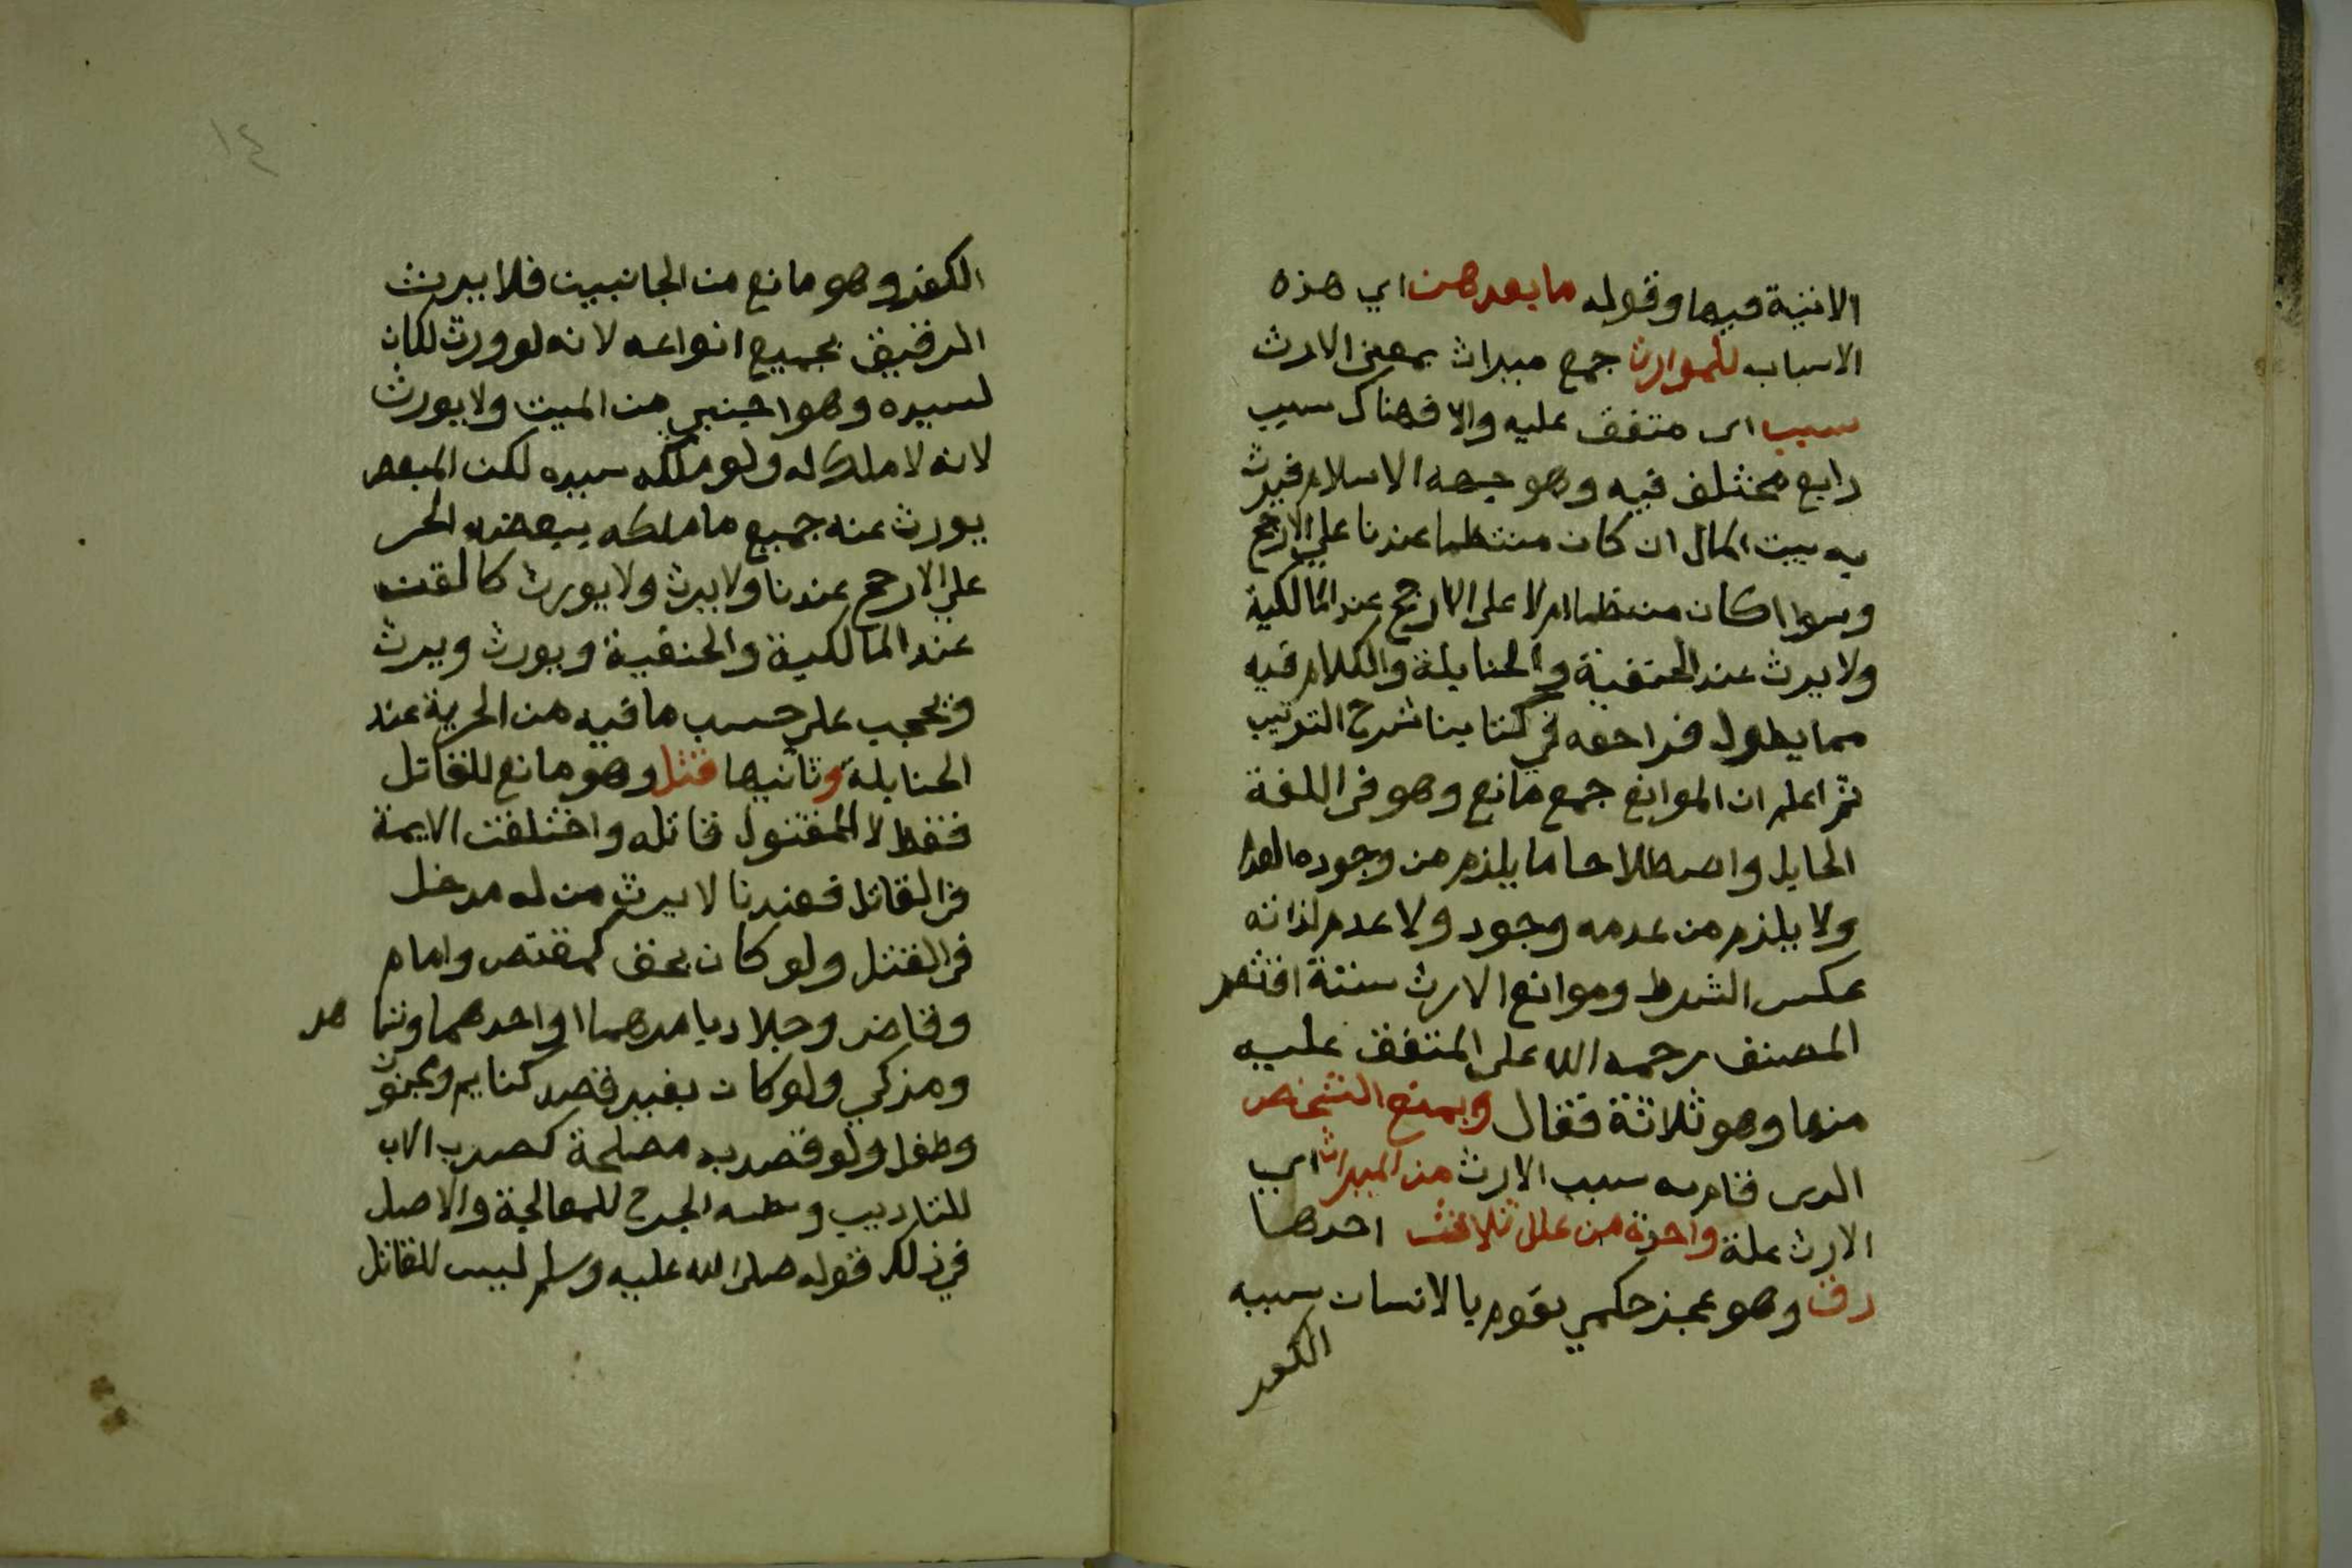 الاتية فيها وقوله ما بعدهن اي هذه
الاسباب للموارث جمع ميراث بمعنى الارث
سبب اى متفق عليه والا فهناك سبب
رابع مختلف فيه وهو جهه الاسلام فيرث
به بيت المال ان كان منتظما عندنا على الارجح
وسوا كان منتظما ام لا على الارجح عند المالكية
ولا يرث عند الحنفية والحنابلة والكلام فيه
مما يطول فراجعه في كتابنا شرح الترتيب
ثم اعلم ان الموانع جمع مانع وهو في اللغة
الحايل واصطلاحا ما يلزم من وجوده العدم
ولا يلزم من عدمه وجود ولا عدم لذاته
عكس الشرط وموانع الارث ستة اقتصر
المصنف رحمه الله على المتفق عليه
منها وهو ثلاثة فقال ويمنع الشخص
الدى قام به سبب الارث من الميراث اي
الارث علة واحدة من علل ثلاث احدها
رق وهو عجز حكمي يقوم بالانسان سببه
الكفر
١٤
الكفر وهو مانع من الجانبين فلا يرث
الرقيق بجميع انواعه لانه لو ورث لكان
لسيده وهو اجنبي من الميت ولا يورث
لانه لا ملك له ولو ملكه سيده لكن المبعض
يورث عنه جميع ما ملكه ببعضه الحر
على الارجح عندنا ولا يرث ولا يورث كالقن
عند المالكية والحنفية ويورث ويرث
ويحجب على حسب ما فيه من الحرية عند
الحنابلة وثانيها قتل وهو مانع للقاتل
فقط لا المقتول قاتله واختلفت الايمة
في القاتل فعندنا لا يرث من له مدخل
في القتل ولو كان بحق كمقتص وامام
وقاضى وجلاد بامرهما او احدهما وشا هد
ومزكي ولو كان بغير قصد كنايم ومجنون
وطفل ولو قصد به مصلحة كضرب الاب
للتاديب وبطه الجرح للمعالجة والاصل
في ذلك قوله صلى الله عليه وسلم ليس للقاتل